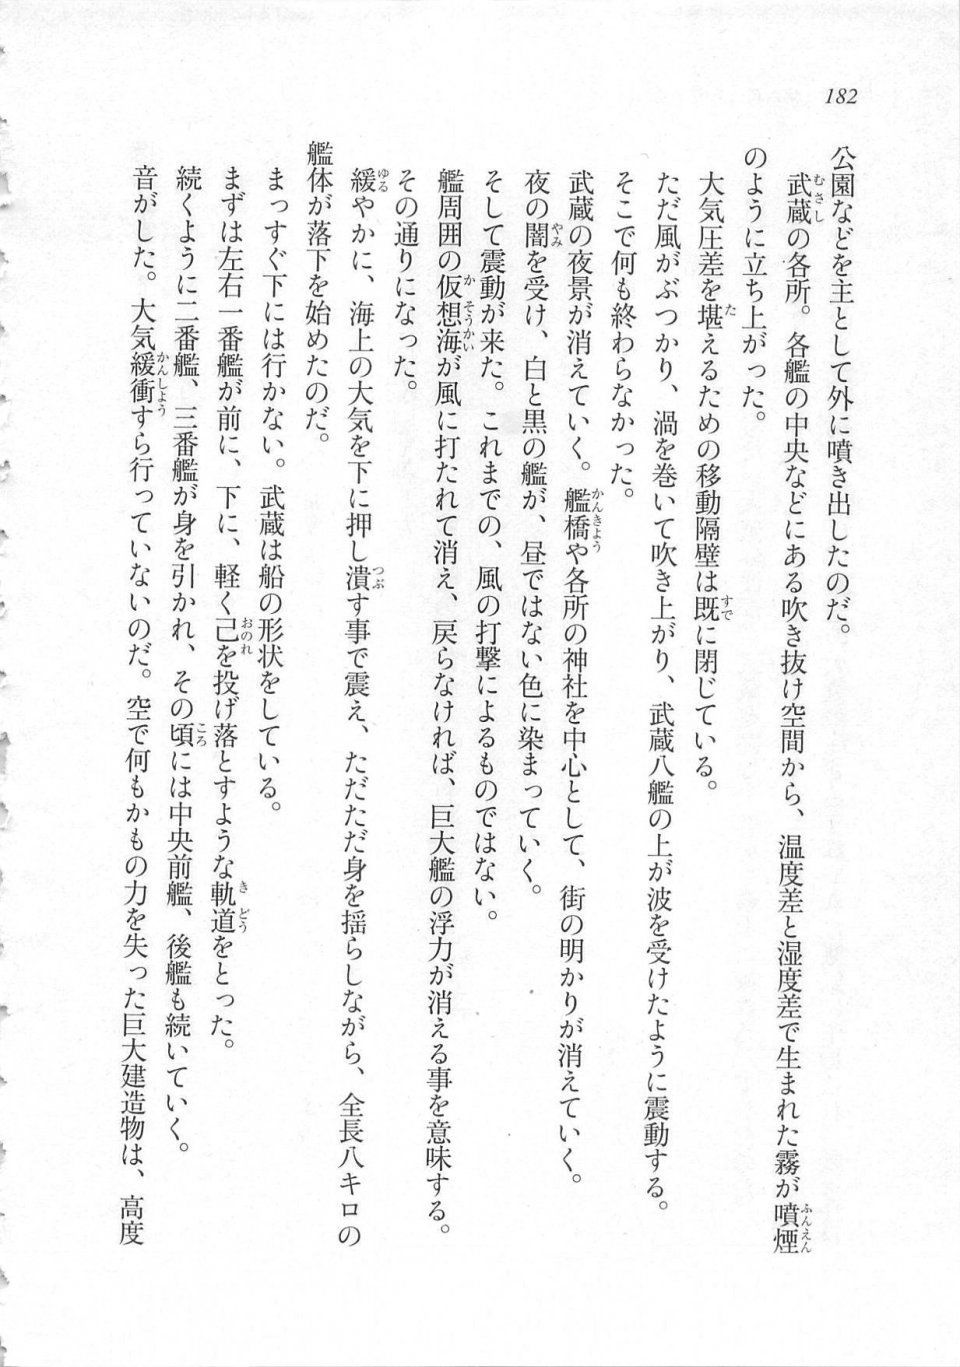 182
公園などを主として外に噴き出したのだ。
武蔵の各所。各艦の中央などにある吹き抜け空間から、温度差と湿度差で生まれた霧が噴煙
のように立ち上がった。
大気圧差を堪えるための移動隔壁は既に閉じている。
ただ風がぶつかり、渦を巻いて吹き上がり、武蔵八艦の上が波を受けたように震動する。
そこで何も終わらなかった。
武蔵の夜景が消えていく。艦橋や各所の神社を中心として、街の明かりが消えていく。
夜の闇を受け、白と黒の艦が、昼ではない色に染まっていく。
そして震動が来た。これまでの、風の打撃によるものではない。
艦周囲の仮想海が風に打たれて消え、戻らなければ、巨大艦の浮力が消える事を意味する。
その通りになった。
緩やかに、海上の大気を下に押し潰す事で震え、ただただ身を揺らしながら、全長八キロの
艦体が落下を始めたのだ。
まっすぐ下には行かない。武蔵は船の形状をしている。
まずは左右一番艦が前に、下に、軽く己を投げ落とすような軌道をとった。
続くように二番艦、三番艦が身を引かれ、その頃には中央前艦、後艦も続いていく。
音がした。大気緩衝すら行っていないのだ。空で何もかもの力を失った巨大建造物は、高度